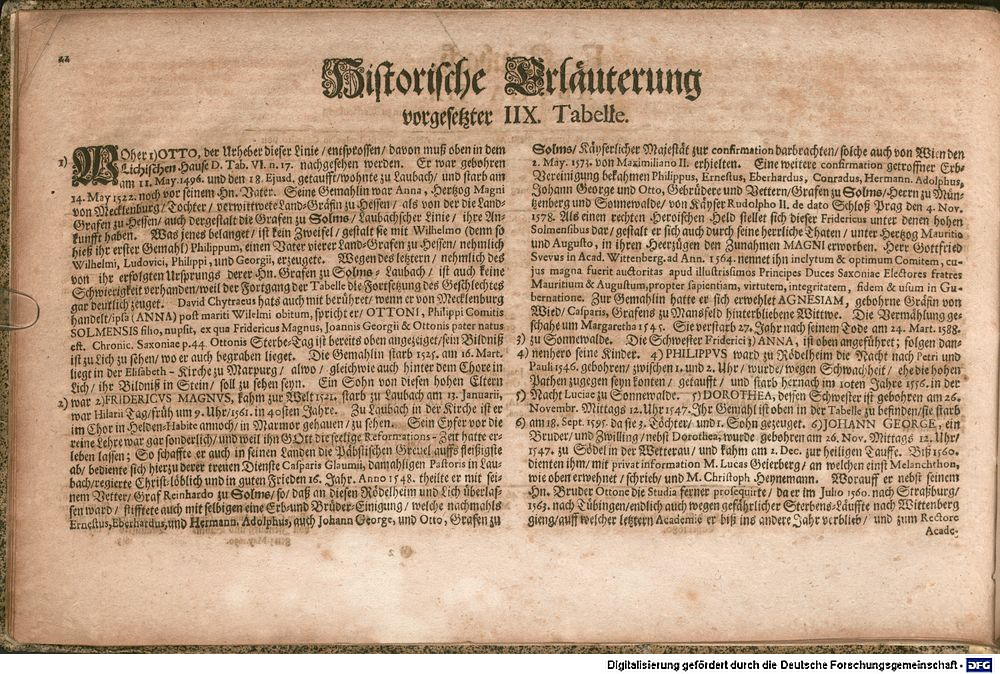 22
Historische Erläuterung
vorgesetzter IIX. Tabelle.
1) WOher 1) OTTO, der Urheber dieser Linie / entsprossen / davon muß oben in dem
Lichischen Hause D. Tab. VI. n. 17. nachgesehen werden. Er war gebohren
am 11. May. 1496. und den 18. Ejusd. getaufft / wohnte zu Laubach / und starb am
14. May 1522. noch vor seinem Hn. Vater. Seine Gemahlin war Anna, Hertzog Magni
von Mecklenburg / Tochter / verwittwete Land-Gräfin zu Hessen / als von der die Land-
Grafen zu Hessen / auch dergestalt die Grafen zu Solms / Laubachscher Linie / ihre An-
kunfft haben. Was jenes belanget / ist kein Zweifel / gestalt sie mit Wilhelmo (denn so
hieß ihr erster Gemahl) Philippum, einen Vater vierer Land-Grafen zu Hessen / nehmlich
Wilhelmi, Ludovici, Philippi, und Georgii, erzeugete. Wegen des letztern / nehmlich des
von ihr erfolgten Ursprungs derer Hn. Grafen zu Solms - Laubach / ist auch keine
Schwierigkeit verhanden / weil der Fortgang der Tabelle die Fortsetzung des Geschlechtes
gar deutlich zeuget. David Chytraeus hats auch mit berühret / wenn er von Mecklenburg
handelt / ipsa (ANNA) post mariti Wilelmi obitum, spricht er / OTTONI, Philippi Comitis
SOLMENSIS filio, nupsit, ex qua Fridericus Magnus, Joannis Georgii & Ottonis pater natus
est. Chronic. Saxoniae p. 44. Ottonis Sterbe-Tag ist bereits oben angezeiget / sein Bildniß
ist zu Lich zu sehen / wo er auch begraben lieget. Die Gemahlin starb 1525. am 16. Mart.
liegt in der Elisabeth - Kirche zu Marpurg / alwo / gleichwie auch hinter dem Chore in
Lich / ihr Bildniß in Stein / soll zu sehen seyn. Ein Sohn von diesen hohen Eltern
2) war 2) FRIDERICVS MAGNVS, kahm zur Welt 1521. starb zu Laubach am 13. Januarii,
war Hilarii Tag / früh um 9. Uhr / 1561. in 40sten Jahre. Zu Laubach in der Kirche ist er
im Chor in Helden-Habite annoch / in Marmor gehauen / zu sehen. Sein Eyfer vor die
reine Lehre war gar sonderlich / und weil ihn GOtt die seelige Reformations-Zeit hatte er-
leben lassen; So schaffte er auch in seinen Landen die Päbstischen Greuel auffs fleissigste
ab / bediente sich hierzu derer treuen Dienste Casparis Glaumii, damahligen Pastoris in Lau-
bach / regierte Christ-löblich und in guten Frieden 16. Jahr. Anno 1548. theilte er mit sei-
nem Vetter / Graf Reinhardo zu Solms / so / daß an diesen Rödelheim und Lich überlas-
sen ward / stifftete auch mit selbigen eine Erb- und Brüder-Einigung / welche nachmahls
Ernestus, Eberhardus, und Hermann. Adolphus, auch Johann George, und Otto, Grafen zu
Solms / Käyserlicher Majestät zur confirmation darbrachten / solche auch von Wien den
2. May. 1573. von Maximiliano II. erhielten. Eine weitere confirmation getroffner Erb-
Vereinigung bekahmen Philippus, Ernestus, Eberhardus, Conradus, Hermann. Adolphus,
Johann George und Otto, Gebrüdere und Vettern / Grafen zu Solms / Herrn zu Mün-
tzenberg und Sonnewalde / von Käyser Rudolpho II. de dato Schloß Prag den 4. Nov.
1578. Als einen rechten Heroischen Held stellet sich dieser Fridericus unter denen hohen
Solmensibus dar / gestalt er sich auch durch seine herrliche Thaten / unter Hertzog Mauritio
und Augusto, in ihren Heerzügen den Zunahmen MAGNI erworben. Herr Gottfried
Svevus in Acad. Wittenberg. ad Ann. 1564. nennet ihn inclytum & optimum Comitem, cu-
jus magna fuerit auctoritas apud illustrissimos Principes Duces Saxoniae Electores fratres
Mauritium & Augustum, propter sapientiam, virtutem, integritatem, fidem & usum in Gu-
bernatione. Zur Gemahlin hatte er sich erwehlet AGNESIAM, gebohrne Gräfin von
Wied / Casparis, Grafens zu Mansfeld hinterbliebene Wittwe. Die Vermählung ge-
schahe um Margaretha 1545. Sie verstarb 27. Jahr nach seinem Tode am 24. Mart. 1588.
3) zu Sonnewalde. Die Schwester Friderici 3) ANNA, ist oben angeführet; folgen dan-
4) nenhero seine Kinder. 4) PHILIPPVS ward zu Rödelheim die Nacht nach Petri und
Pauli 1546. gebohren / zwischen 1. und 2. Uhr / wurde / wegen Schwachheit / ehe die hohen
Pathen zugegen seyn konten / getaufft / und starb hernach im 10ten Jahre 1556. in der
5) Nacht Luciae zu Sonnewalde. 5) DOROTHEA, dessen Schwester ist gebohren am 26.
Novembr. Mittags 12. Uhr 1547. Ihr Gemahl ist oben in der Tabelle zu befinden / sie starb
6) am 18. Sept. 1595. da sie 3. Töchter / und 1. Sohn gezeuget. 6) JOHANN GEORGE, ein
Bruder / und Zwilling / nebst Dorothea, wurde gebohren am 26. Nov. Mittags 12. Uhr /
1547. zu Södel in der Wetterau / und kahm am 2. Dec. zur heiligen Tauffe. Biß 1560.
dienten ihm / mit privat information M. Lucas Geierberg / an welchen einst Melanchthon,
wie oben erwehnet / schrieb / und M. Christoph. Heynemann. Worauf er nebst seinem
Hn. Bruder Ottone die Studia ferner prosequirte / da er im Julio 1560. nach Straßburg /
1563. nach Tübingen / endlich auch wegen gefährlicher Sterbens-Läuffte nach Wittenberg
gieng / auff welcher letztern Academie er biß ins andere Jahr verblieb / und zum Rectore
Acade-
2
Digitalisierung gefördert durch die Deutsche Forschungsgemeinschaft - DFG